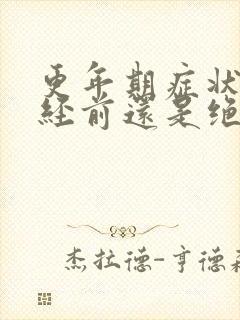 更年期症状
经前还是绝
杰拉德-亨德森